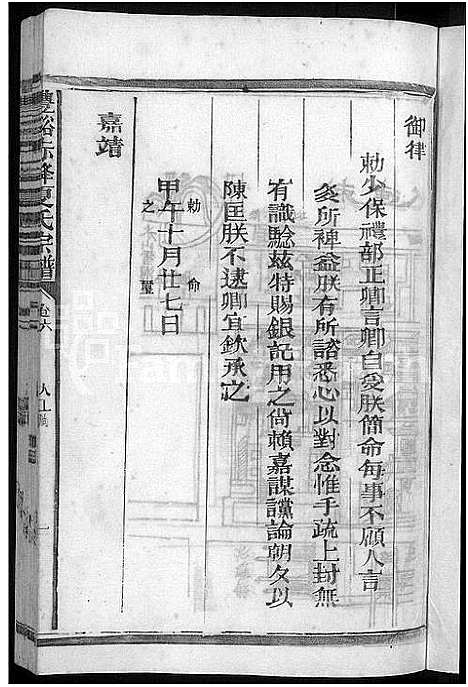 御律
勅少保禮部正卿言卿自受朕簡命每事不顧人言
㐲所裨益朕有所諮悉心以對念惟手疏上封無
有識驗兹特賜銀記用之尙賴嘉謀讜論朝夕以
陳匡朕不逮卿宜欽承之
勅命
甲午十月廿七日
之寶
嘉靖
豐谿赤峰夏氏宗譜
卷六